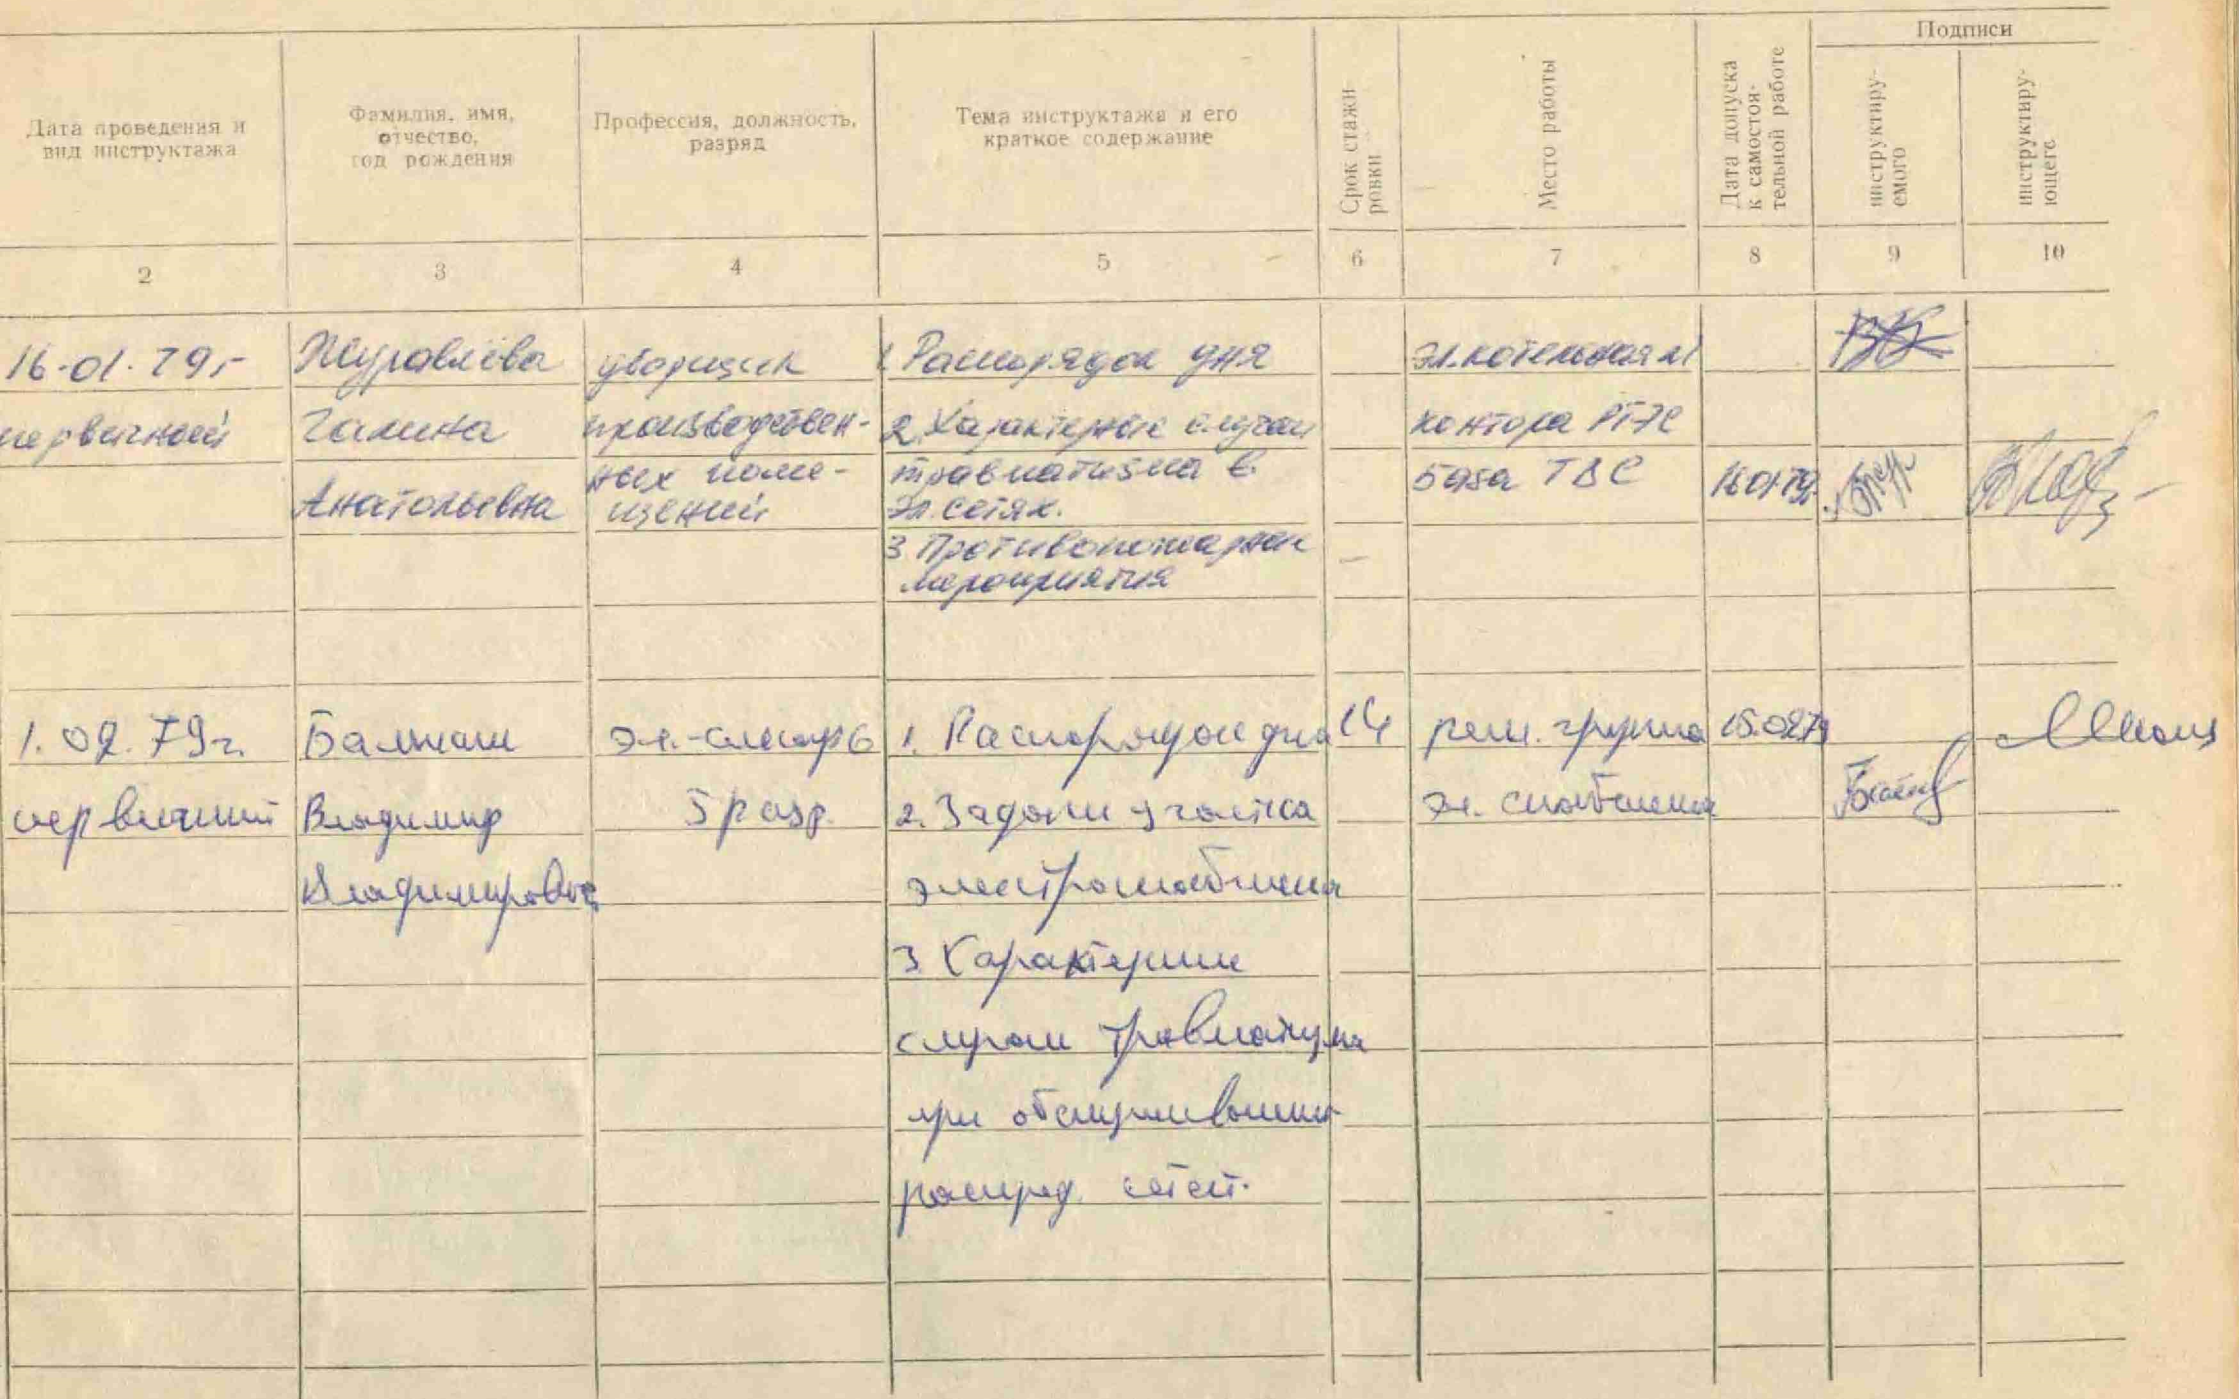 Подписи
Дата проведения и
вид инструктажа
Фамилия, имя,
отчество,
год рождения
Профессия, должность,
разряд
Тема инструктажа и его
краткое содержание
Срок стажи
ровки
Место работы
Дата допуска
к самостоя-
тельной работе
инструктиру-
емого
инструктиру-
ющего
2
3
4
5
6
7
8
9
10
16.01.79г
первичный
Журавлёва
Галина
Анатольевна
уборщик
производствен-
ных поме-
щений
1 Распорядок дня
2. Характерные случаи
травматизма в
эл. сетях.
3 Противопожарные
мероприятия
эл. котельная №1
контора РТЭС
База ТВС
16.01.79г.
1.02.79г.
первичный
Балмаш
Владимир
Владимирович
эл.-слесарь
5 разр.
1. Распорядок дня
2. Задачи участка
электроснабжения
3 Характерные
случаи травматизма
при обслуживании
распред. сетей.
14
рем. группа
эл. снабжения
15.02.79